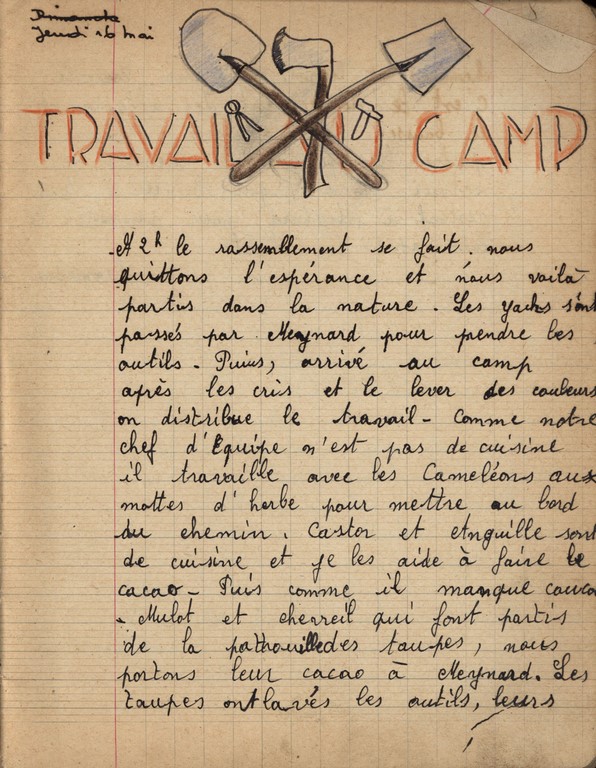 Dimanche
Jeudi 16 mai
TRAVAIL AU CAMP
A 2h le rassemblement se fait. nous
quittons l'espérance et nous voilà
partis dans la nature. Les yacks sont
passés par Meynard pour prendre les
outils. Puis, arrivé au camp
après les cris et le lever des couleurs
on distribue le travail - comme notre
chef d'Equipe n'est pas de cuisine
il travaille avec les Caméléons aux
mottes d'herbe pour mettre au bord
du chemin. Castor et Anguille sont
de cuisine et je les aide à faire le
cacao - Puis comme il manque
- Mulot et chevreil qui font partis
de la pathouilledes taupes, nous
portons leur cacao à Meynard. Les
taupes ont lavés les outils, leurs